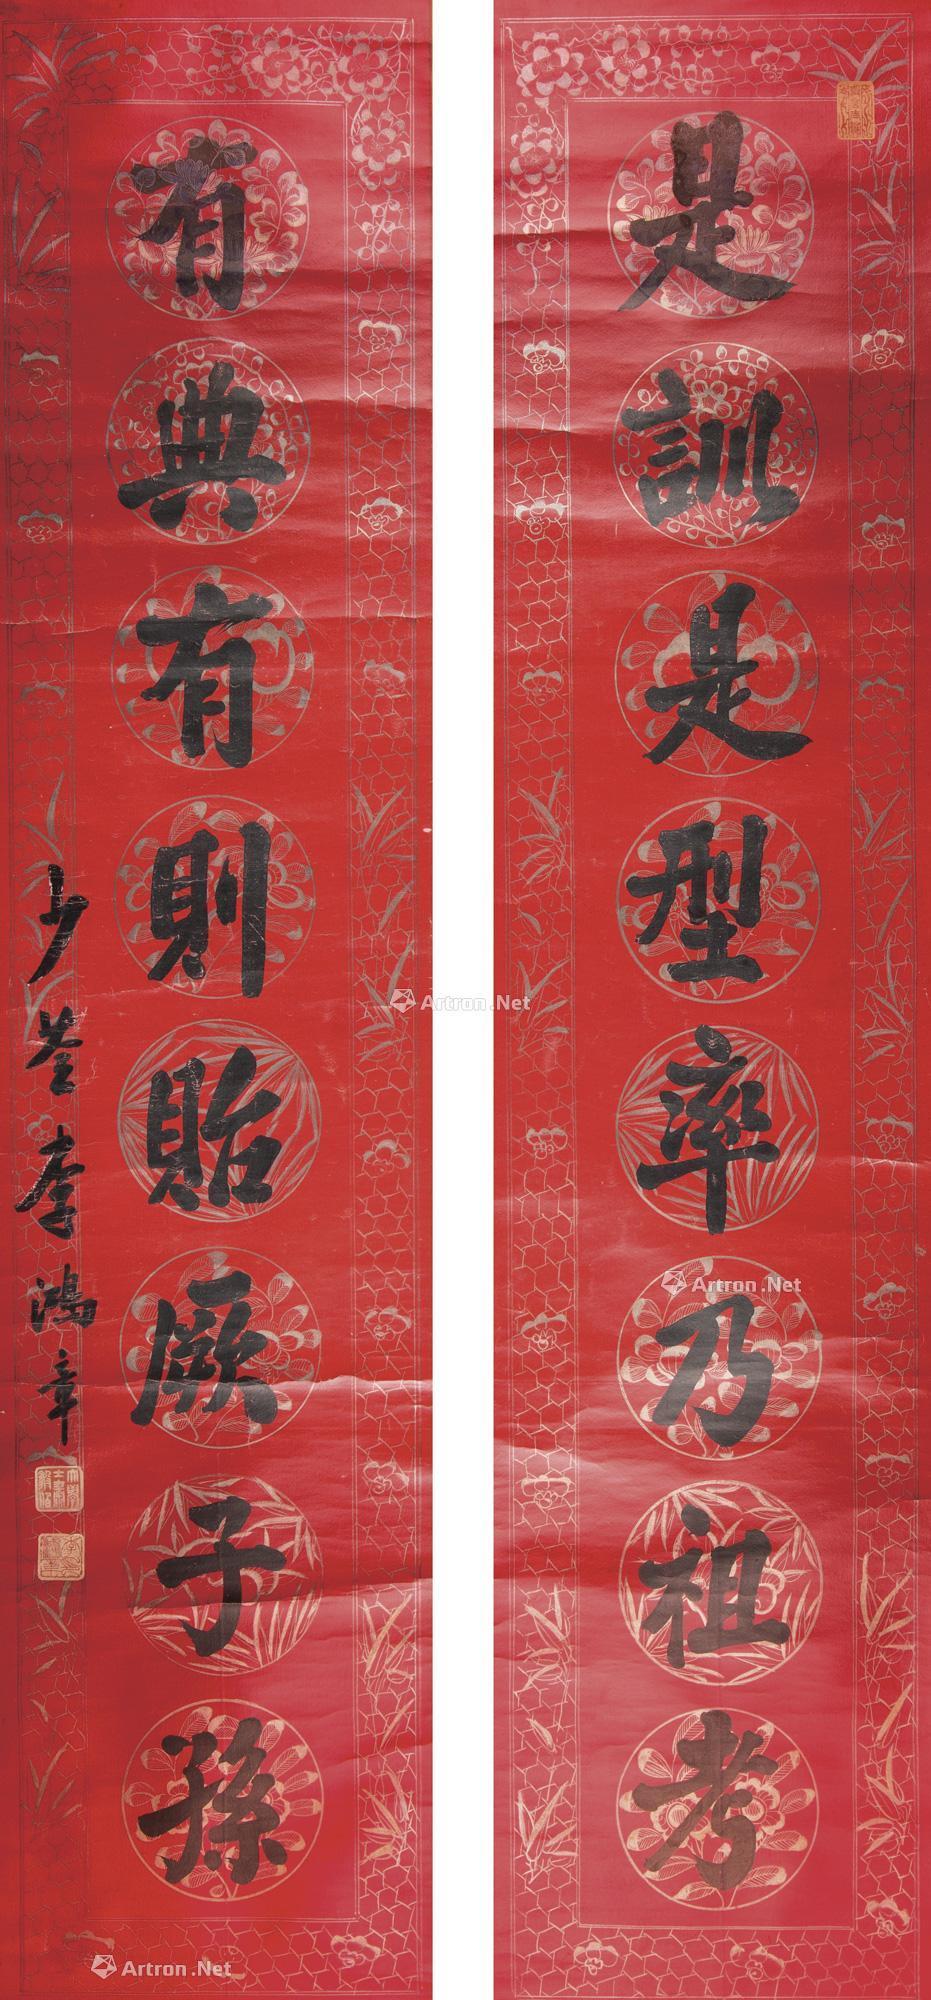 是訓是型率乃祖考
有典有則貽厥子孫
少荃李鴻章
Artron.Net
Artron.Net
Artron.Net